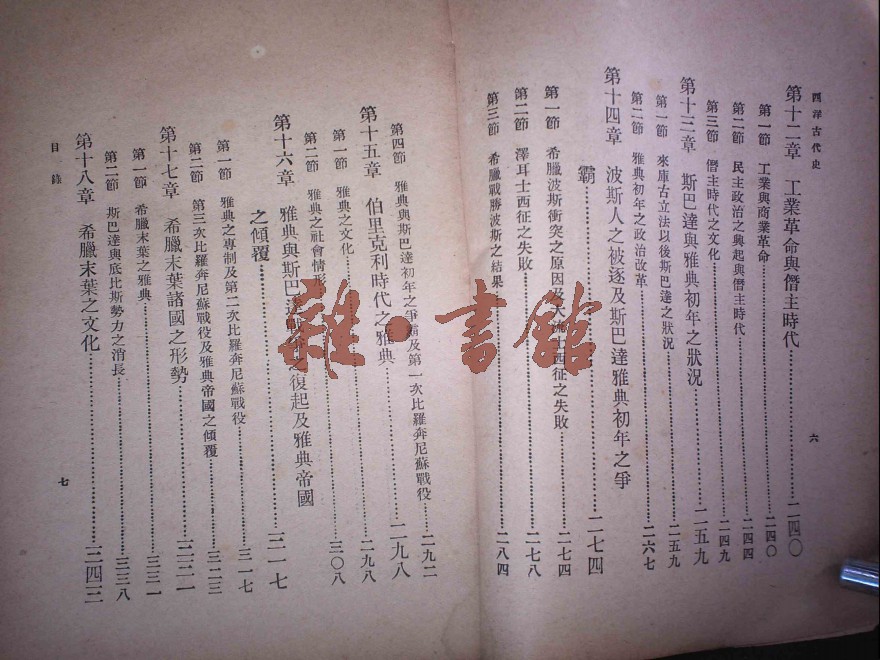 西洋古代史
第十二章 工業革命與僭主時代……二四〇
第一節 工業與商業革命……二四〇
第二節 民主政治之興起與僭主時代……二四四
第三節 僭主時代之文化……二四九
第十三章 斯巴達與雅典初年之狀況……二五九
第一節 來庫古立法以後斯巴達之狀況……二五九
第二節 雅典初年之政治改革……二六七
第十四章 波斯人之被逐及斯巴達雅典初年之爭
霸……二七四
第一節 希臘波斯衝突之原因及大流士西征之失敗……二七四
第二節 澤耳士西征之失敗……二七八
第三節 希臘戰勝波斯之結果……二八四
六
第四節 雅典與斯巴達初年之爭霸及第一次比羅奔尼蘇戰役……二九二
第十五章 伯里克利時代之雅典……二九八
第一節 雅典之文化……二九八
第二節 雅典之社會情形……三〇八
第十六章 雅典與斯巴達戰爭之復起及雅典帝國
之傾覆……三一七
第一節 雅典之專制及第二次比羅奔尼蘇戰役……三一七
第二節 第三次比羅奔尼蘇戰役及雅典帝國之傾覆……三二三
第十七章 希臘末葉諸國之形勢……三三一
第一節 希臘末葉之雅典……三三一
第二節 斯巴達與底比斯勢力之消長……三三八
第十八章 希臘末葉之文化……三四三
目錄
七
雜·書館